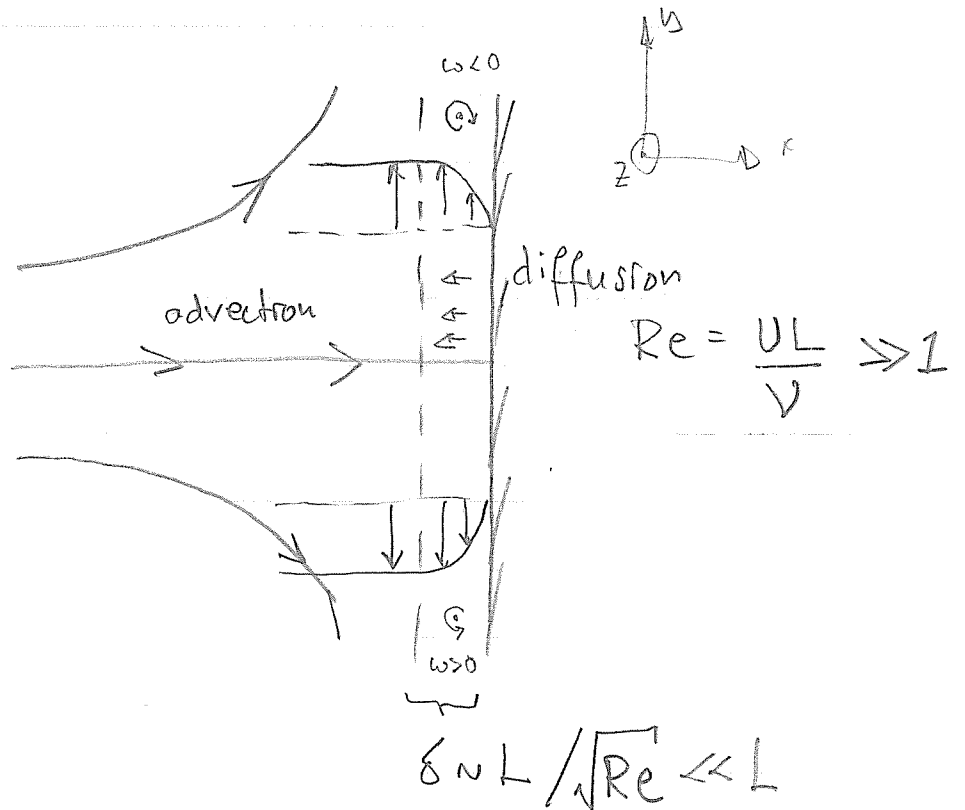 y
ω<0
x
z
diffusion
advection
Re = UL/ν ≫ 1
ω>0
δ ~ L/√Re ≪ L